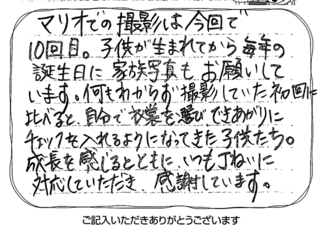 マリオでの撮影は今回で
10回目。子供が生まれてから毎年の
誕生日に家族写真もお願いして
います。何もわからず撮影していた初回に
比べると、自分で衣裳を選び できあがりに
チェックを入れるようになってきた子供たち。
成長を感じるとともに、いつも丁ねいに
対応していただき、感謝しています。
ご記入いただきありがとうございます